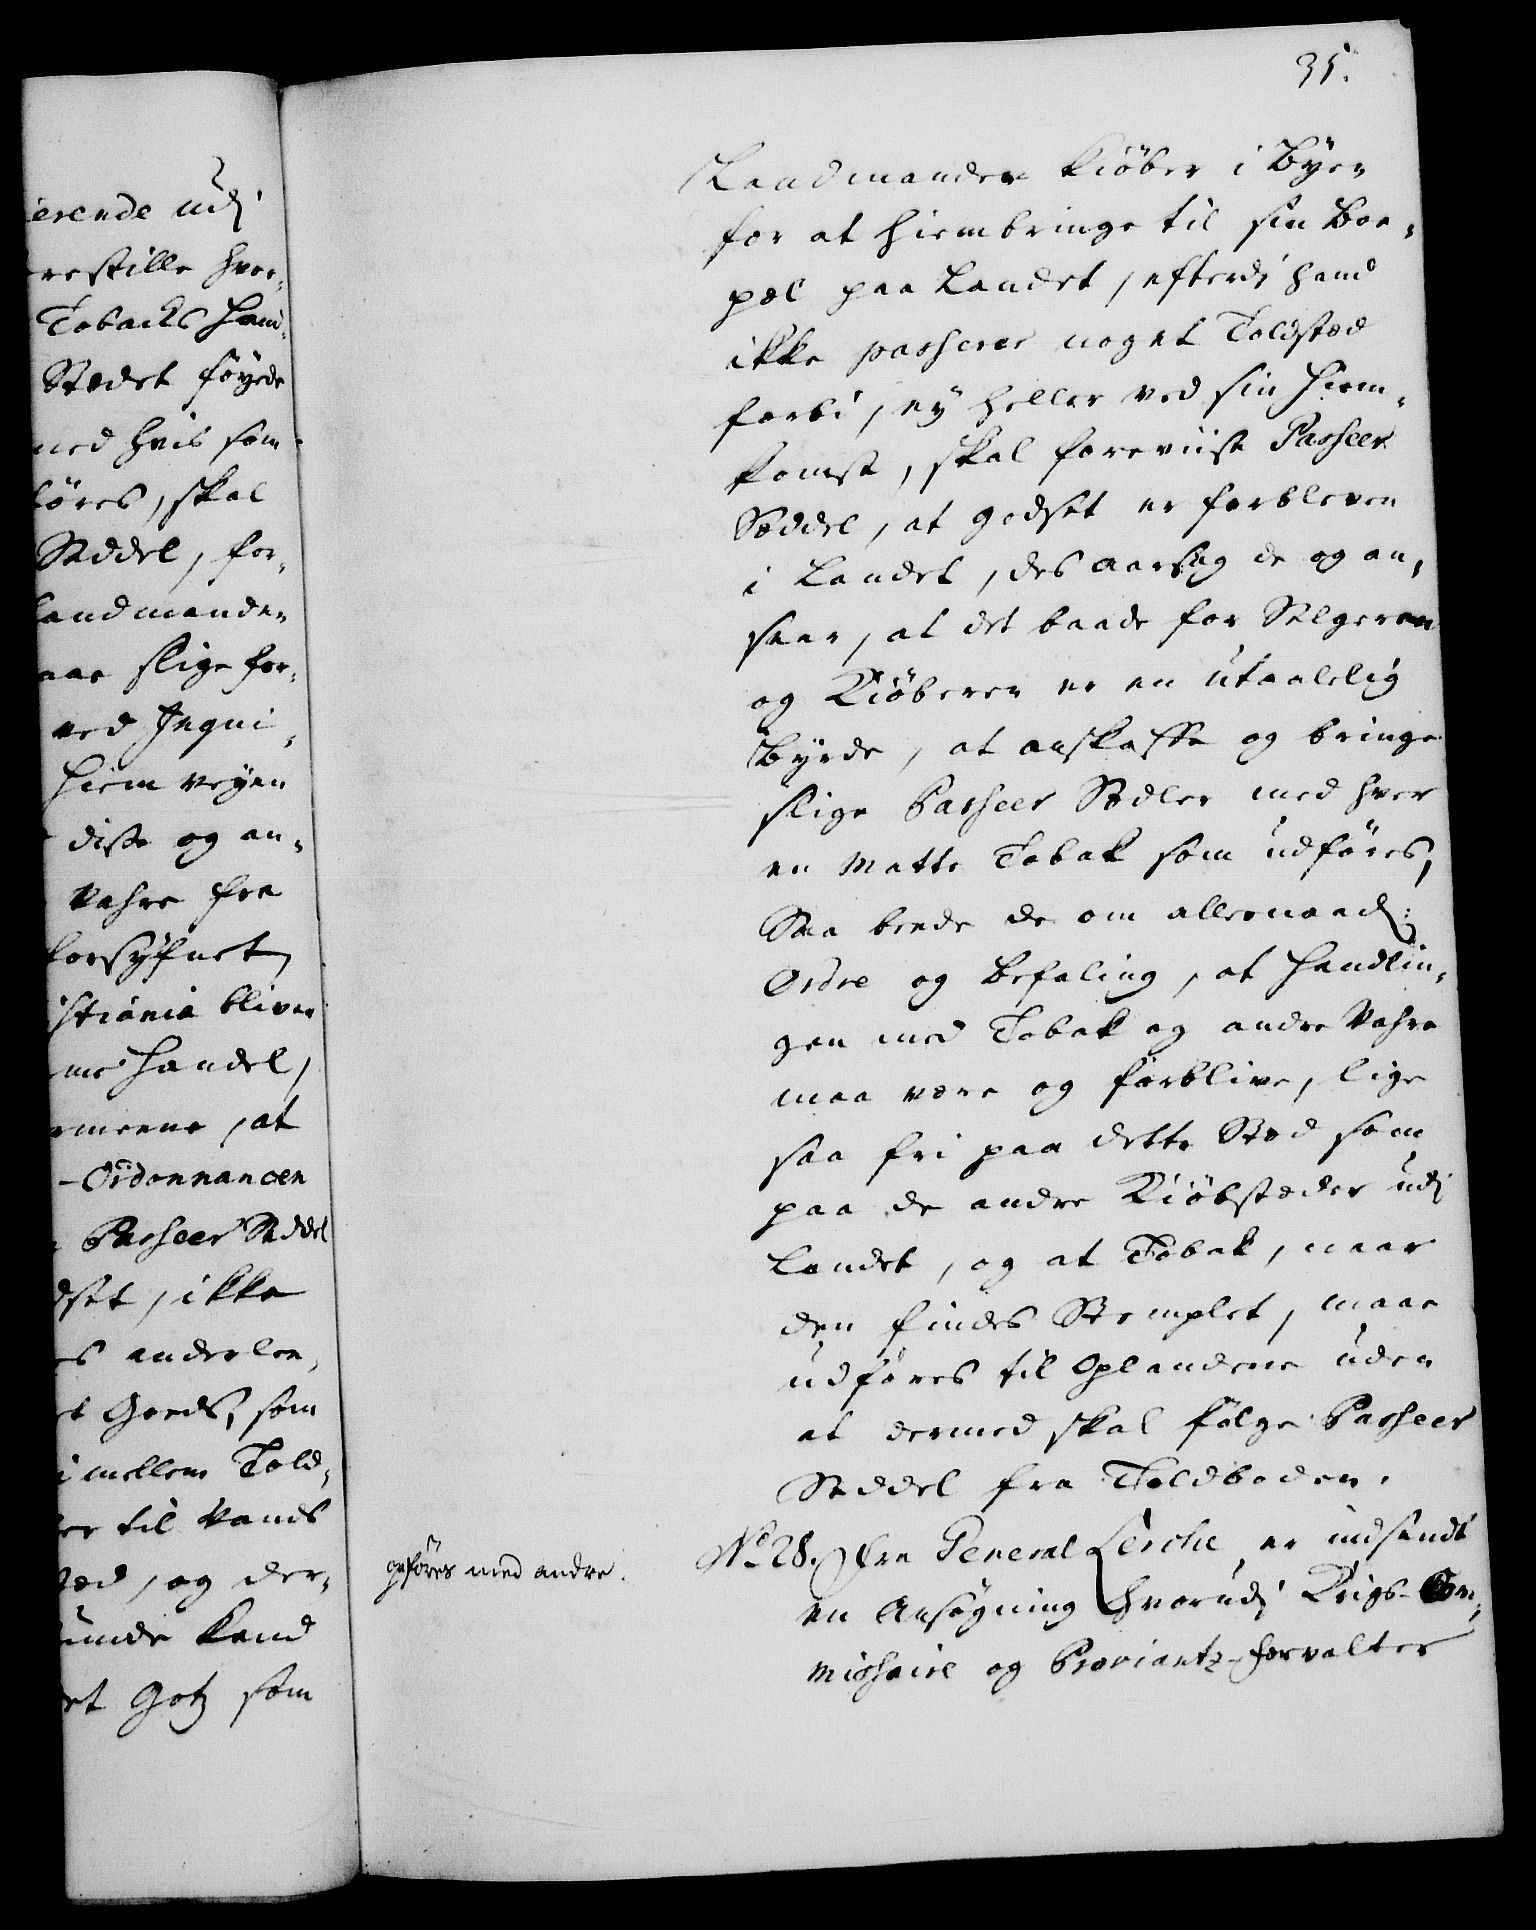 erende udj
restille hvor-
Tobacks Han-
Stædet føyede
med hvis som
føres, skal
Seddel, for-
Landmanden
slige for-
ved Inqui-
hiem veyen
disse og an-
Vahre fra
forsÿfnet,
istiania bliver
Handel,
meene, at
-Ordonnancen
Passeer Seddel
dset, ikke
es anderlee,
t Goeds, som
imellem Told-
er til Vands
sted, og der-
unde kand
et Gotz som
35.
Landmanden kiöber i Bÿen
for at hiembringe til sin Boe-
pæl paa Landet, efterdj hand
ikke passerer noget Toldsted
forbi, eÿ heller ved sin Hiem-
komst, skal foreviise Passeer
Seddel, at godset er forbleven
i Landet, des aarsag de og an-
seer, at det baade for Selgeren
og Kiöberen er en utaalelig
Bÿrde, at anskaffe og bringe
slige Passeer Sedler med hver
en Matte Tobak som udføres,
Saa beede de om allernaad:
Ordre og Befaling, at Handlin-
gen med Tobak og andre Vahre
maa være og forblive, lige
saa fri paa dette Sted som
paa de andre Kiöbstæder udj
Landet, og at Tobak, naar
den findes Stemplet, maae
udføres til Oplandene uden
at dermed skal følge Passeer
Seddel fra Toldboden.
giøres med andre.
No 28. Fra General Lerche er indsendt
en Ansøgning hvorudj Krigs-Com-
missaire og Proviantz-Forvalter